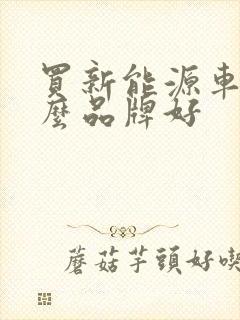 買新能源車
麼品牌好
蘑菇芋頭好喫